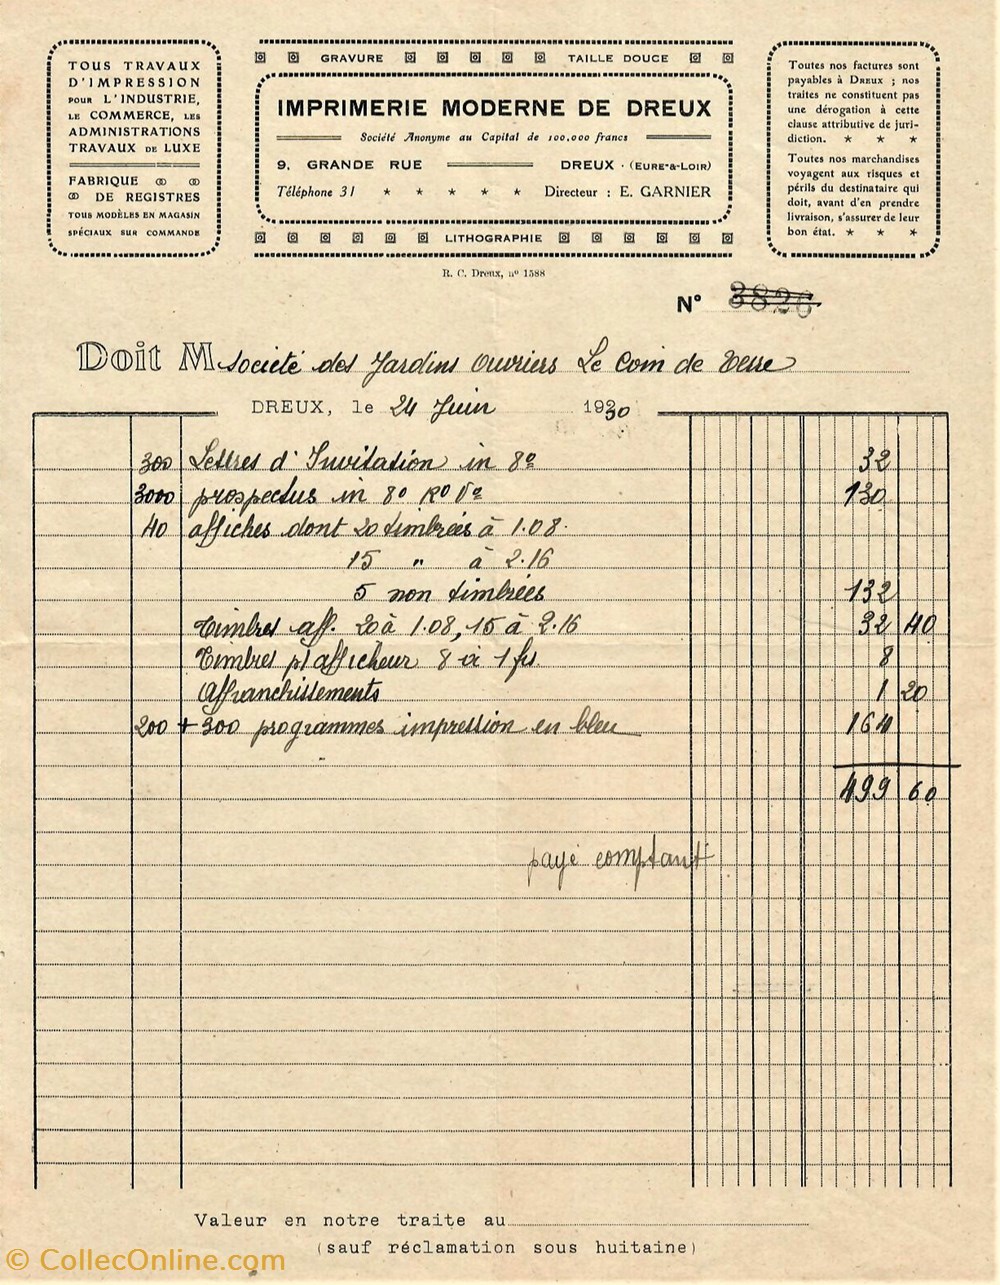 TOUS TRAVAUX
D'IMPRESSION
POUR L'INDUSTRIE,
LE COMMERCE, LES
ADMINISTRATIONS
TRAVAUX DE LUXE
FABRIQUE
DE REGISTRES
TOUS MODÈLES EN MAGASIN
SPÉCIAUX SUR COMMANDE
GRAVURE TAILLE DOUCE
IMPRIMERIE MODERNE DE DREUX
Société Anonyme au Capital de 100.000 francs
9, GRANDE RUE DREUX - (EURE-&-LOIR)
Téléphone 31 * * * * * Directeur : E. GARNIER
LITHOGRAPHIE
Toutes nos factures sont
payables à DREUX ; nos
traites ne constituent pas
une dérogation à cette
clause attributive de juri-
diction. * * *
Toutes nos marchandises
voyagent aux risques et
périls du destinataire qui
doit, avant d'en prendre
livraison, s'assurer de leur
bon état. * * *
R. C. Dreux, nº 1588
N° 3826
Doit M Société des Jardins Ouvriers Le Coin de Terre
DREUX, le 24 Juin 1930
300 Lettres d'Invitation in 8º 32
3000 prospectus in 8º Rº Vº 130
40 affiches dont 20 timbrées à 1.08.
15 " à 2.16
5 non timbrées 132
Timbres aff. 20 à 1.08, 15 à 2.16 32 40
Timbres pr afficheur 8 à 1 fs. 8
Affranchissements 1 20
200 + 300 programmes impression en bleu 164
499 60
payé comptant
Valeur en notre traite au
(sauf réclamation sous huitaine)
© CollecOnline.com